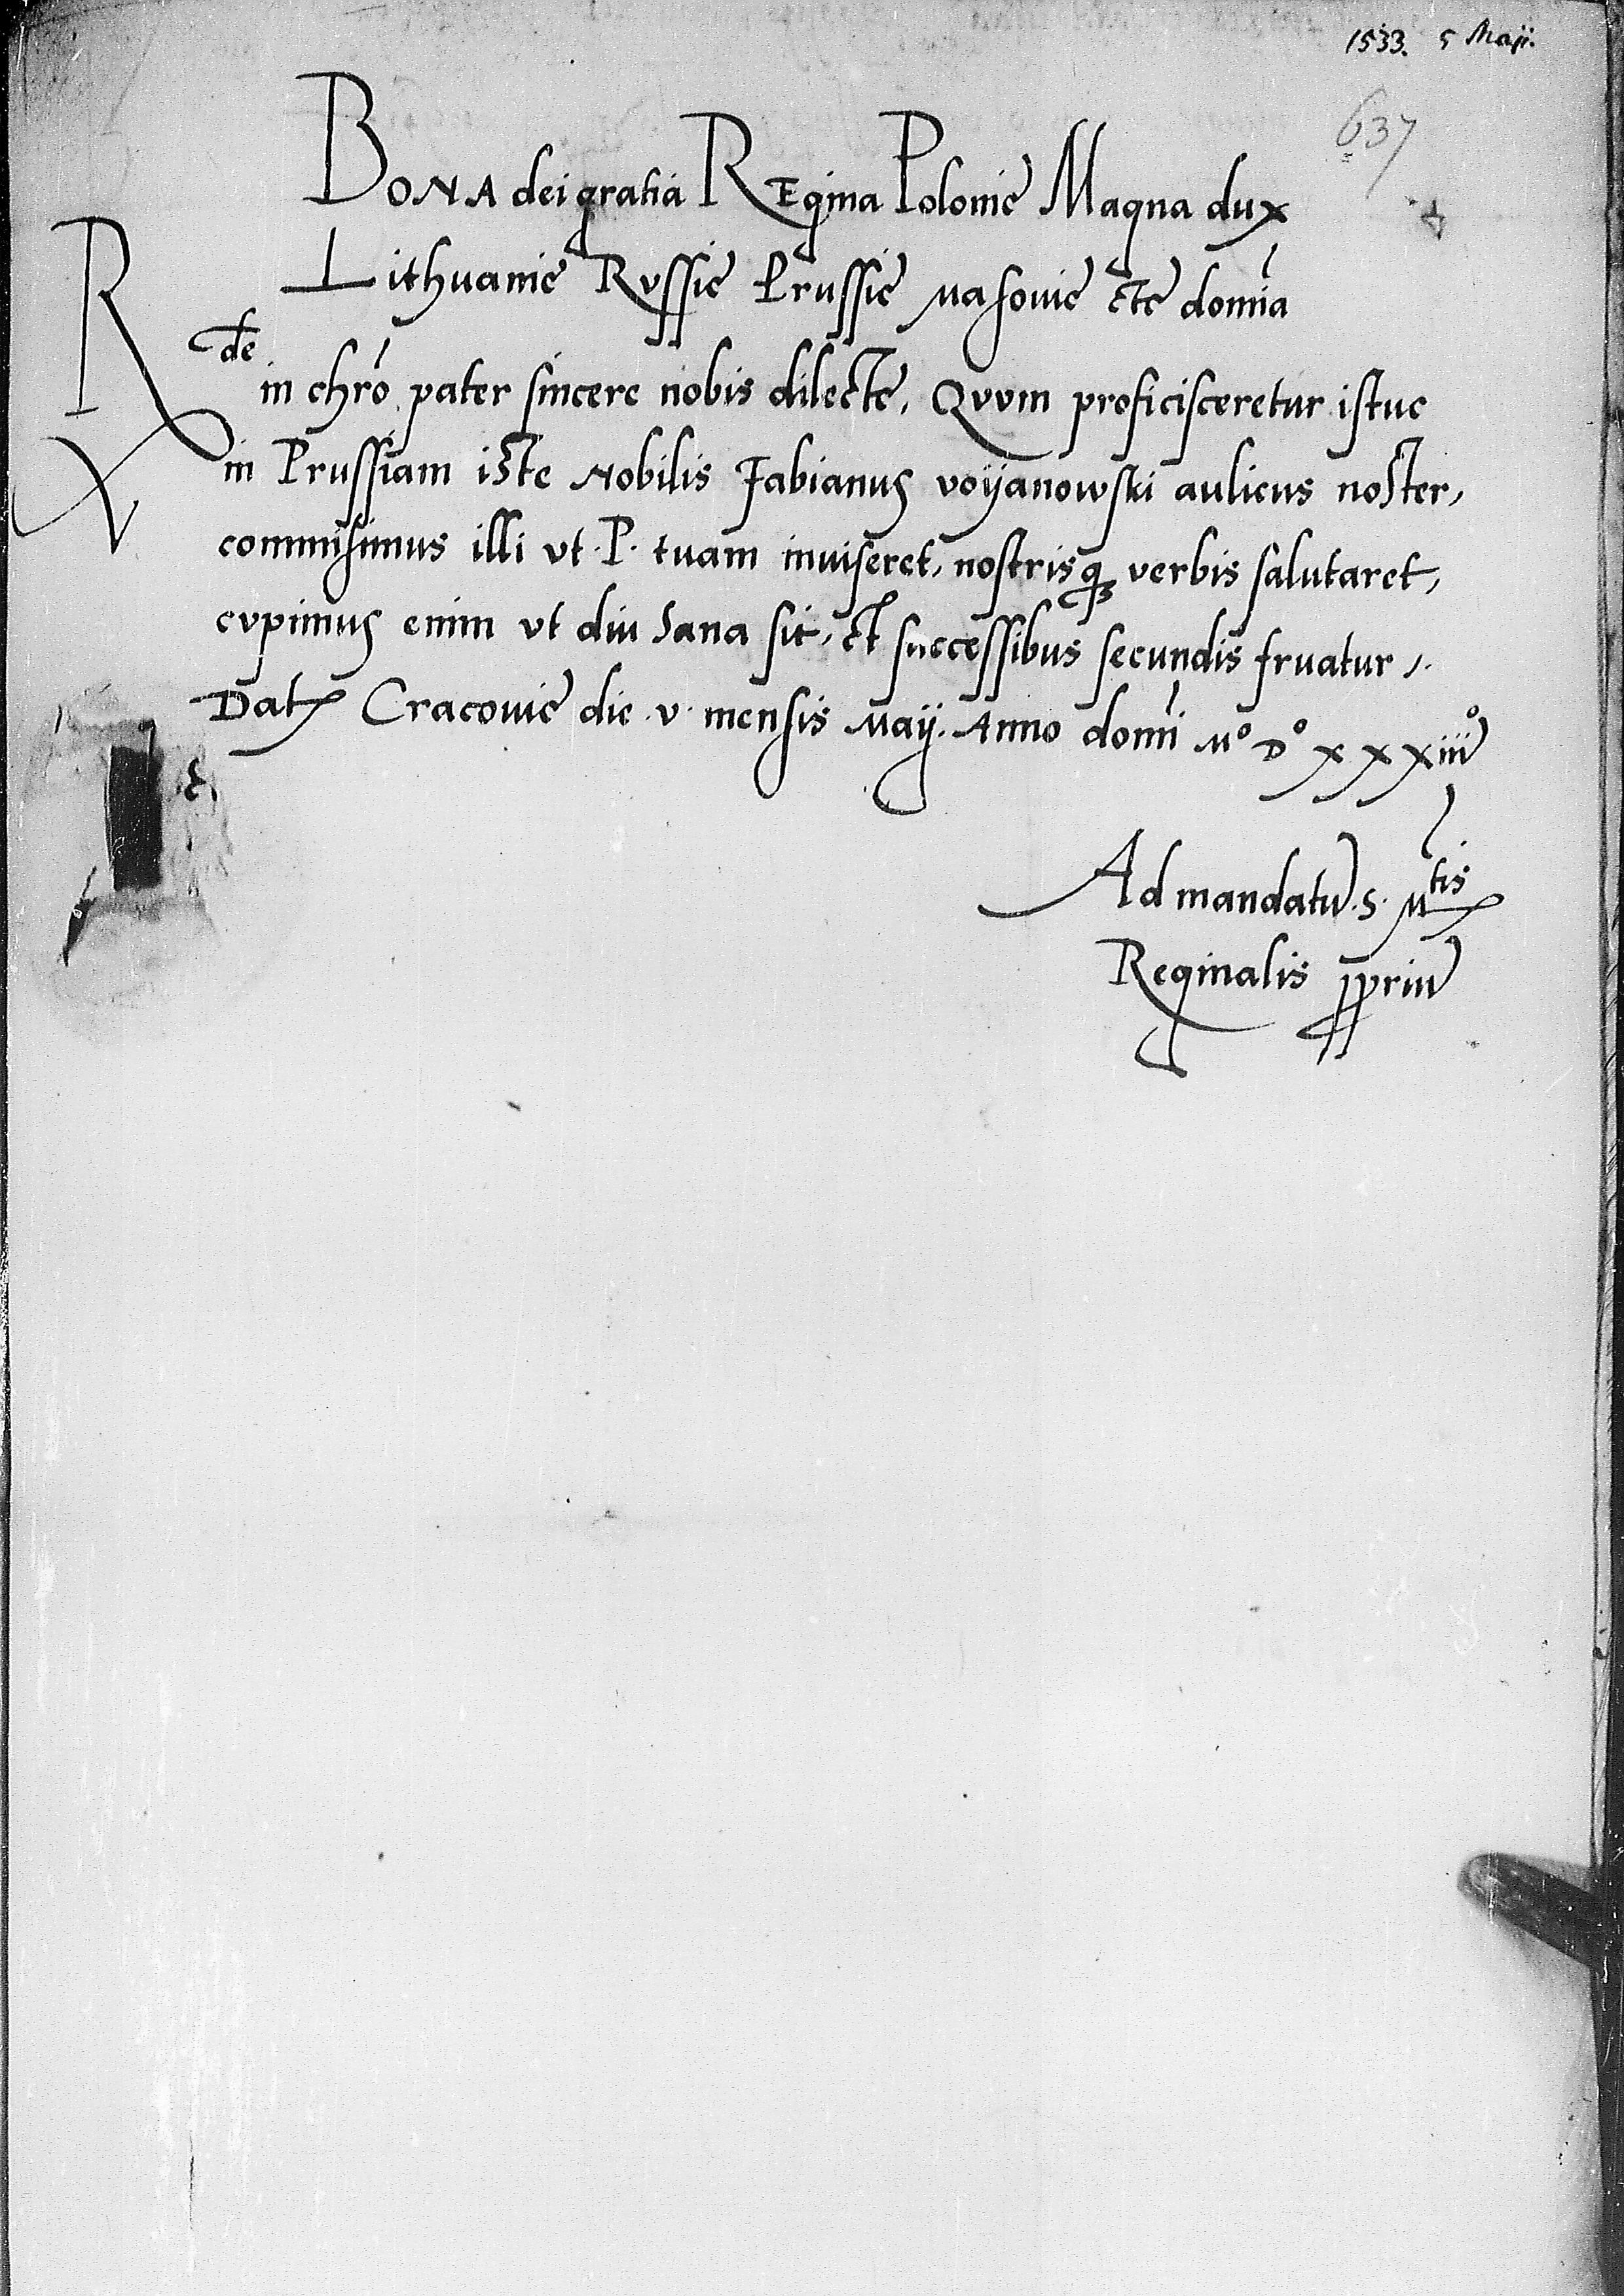 1533. 5 Maji.
637
BONA dei gratia REgina Polonie Magna dux
Lithuanie Russie Prussie Masouie etc domĩa
Rde in chrõ pater sincere nobis dilecte, Quum proficisceretur istuc
in Prussiam iste Nobilis Fabianus voyanowski aulicus noster,
commisimus illi vt .P. tuam inuiseret, nostrisq; verbis salutaret,
cupimus enim vt diu sana sit, et successibus secundis fruatur.
Dat Cracouie die .v. mensis Maij. Anno domĩ Mº Dº xxxiiiº
Ad mandatũ .S. Mtis
Reginalis ppriũ